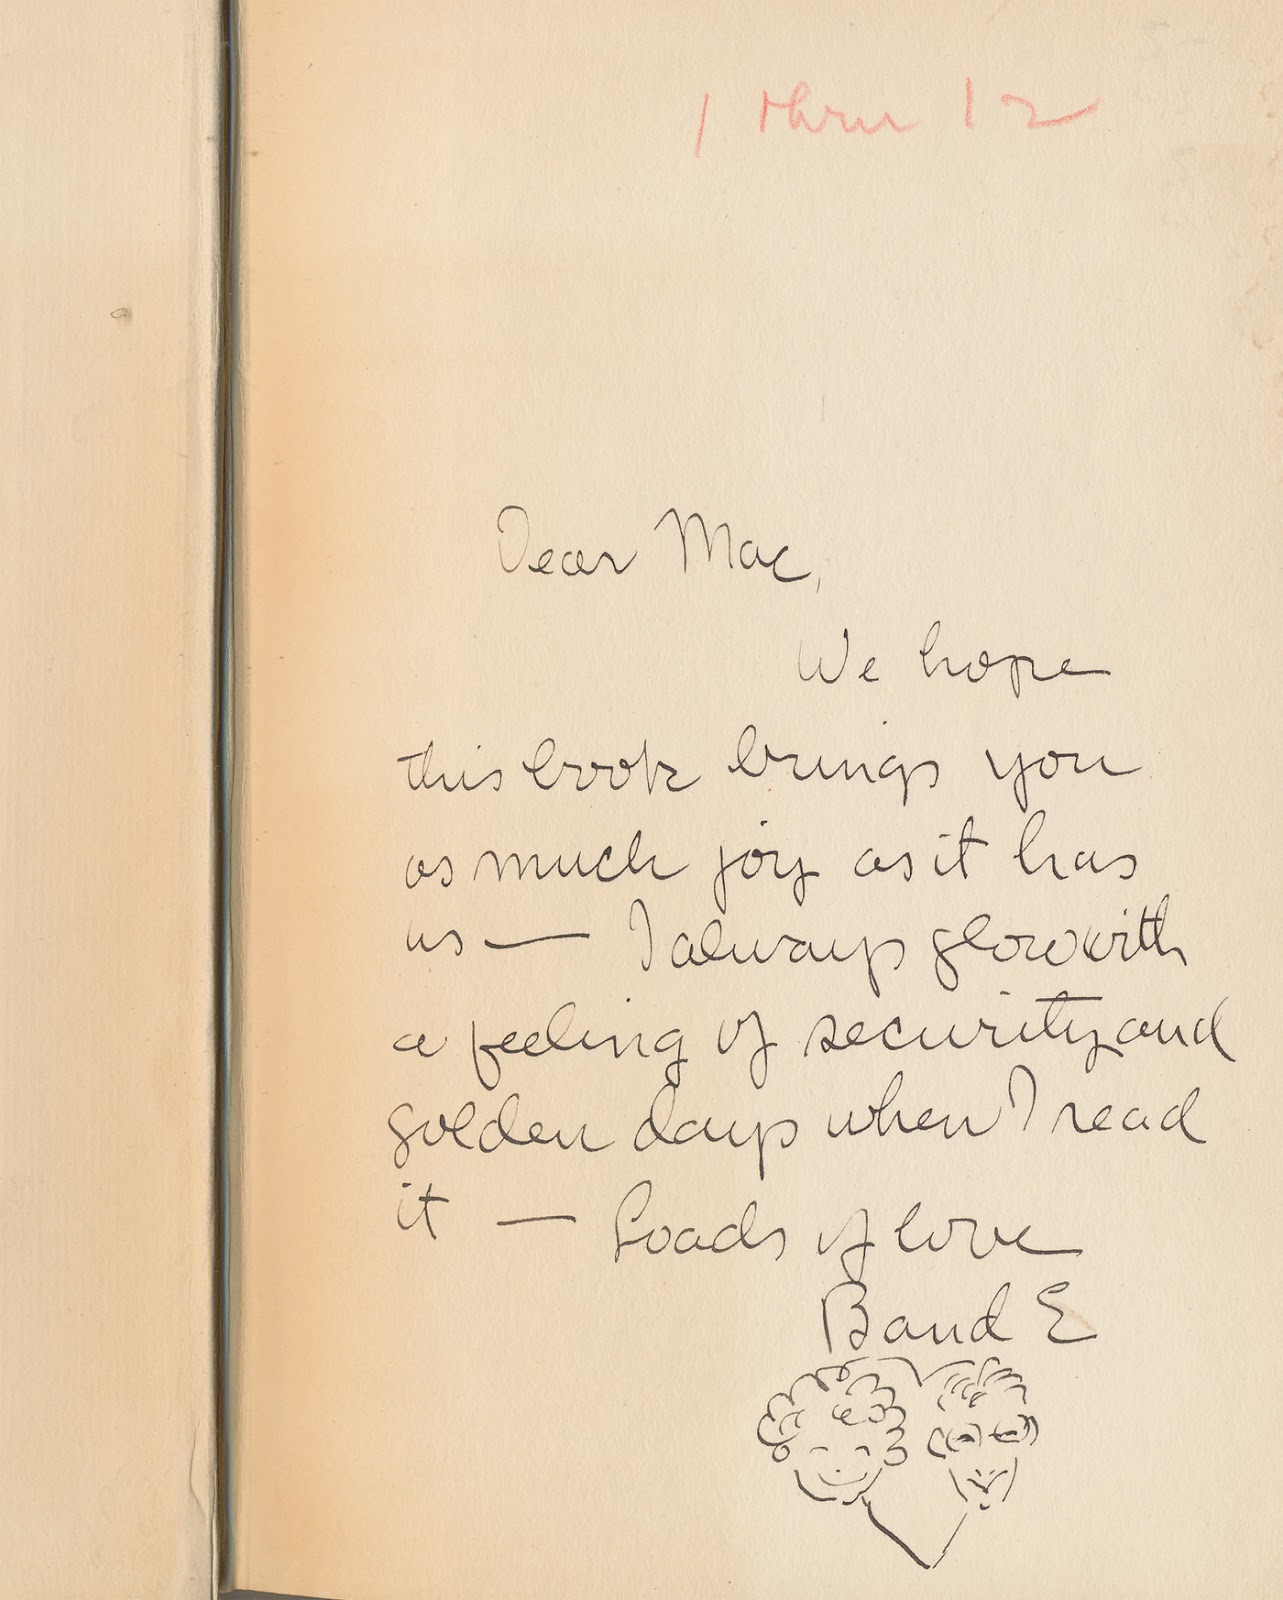 1 thru 12
Dear Mac,
We hope
this book brings you
as much joy as it has
us — I always glow with
a feeling of security and
golden days when I read
it — Loads of love
B and E